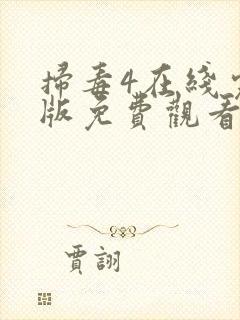 掃毒4在綫
版免費觀看
賈詡